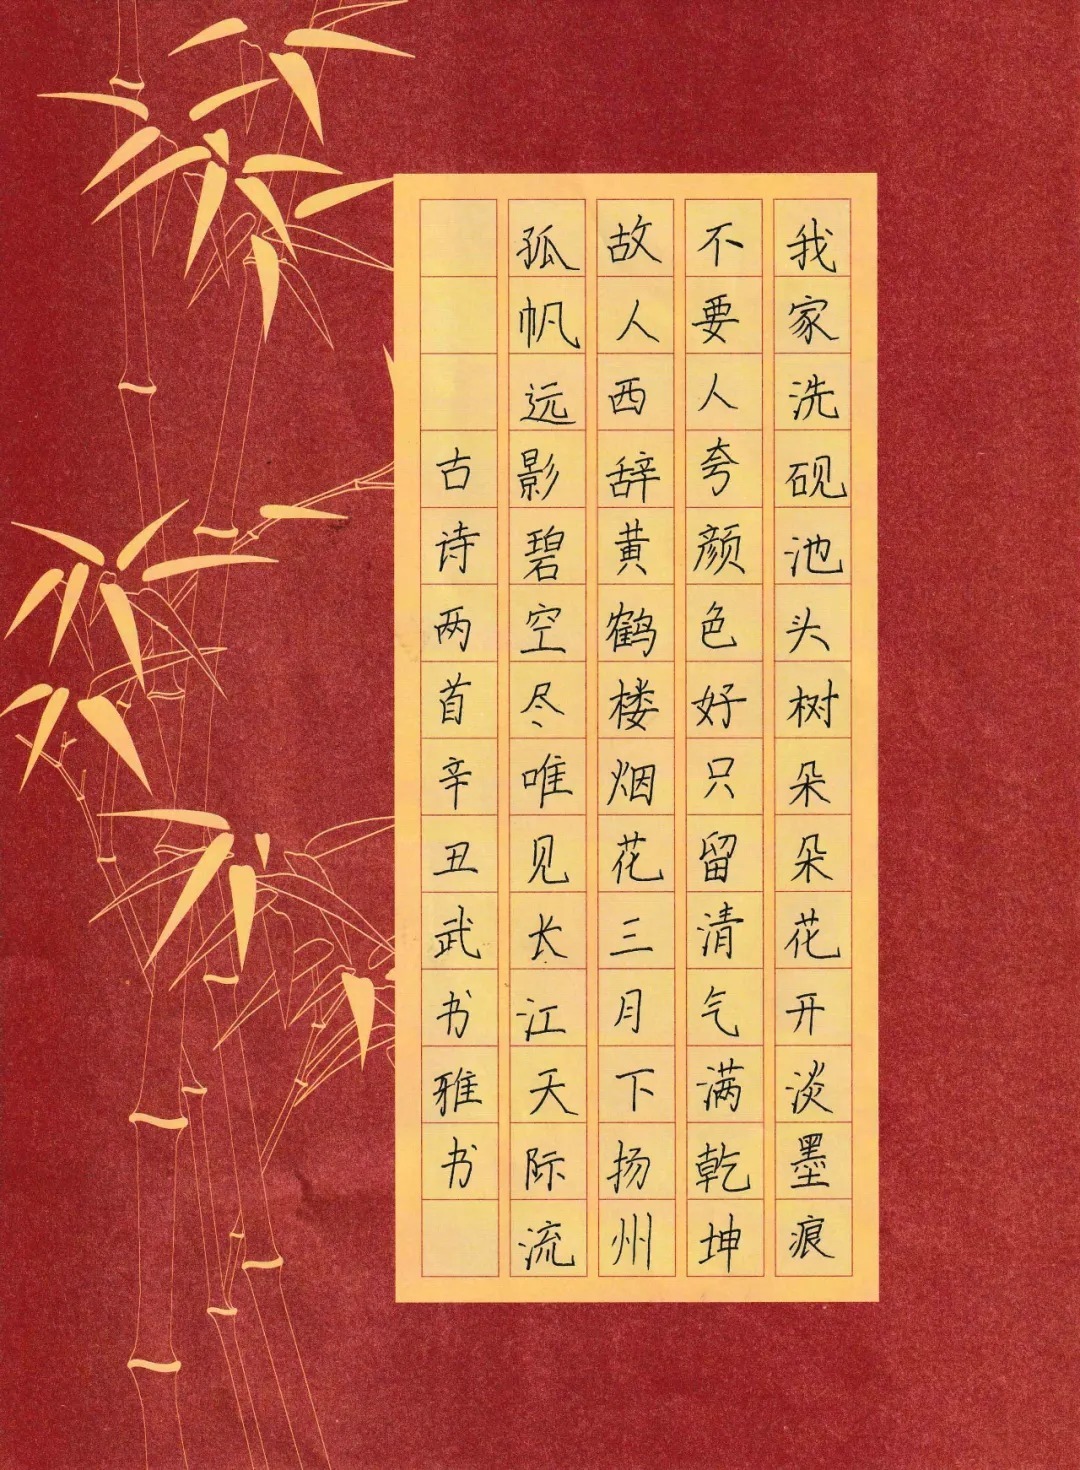 我家洗砚池头树朵朵花开淡墨痕
不要人夸颜色好只留清气满乾坤
故人西辞黄鹤楼烟花三月下扬州
孤帆远影碧空尽唯见长江天际流
古诗两首辛丑武书雅书